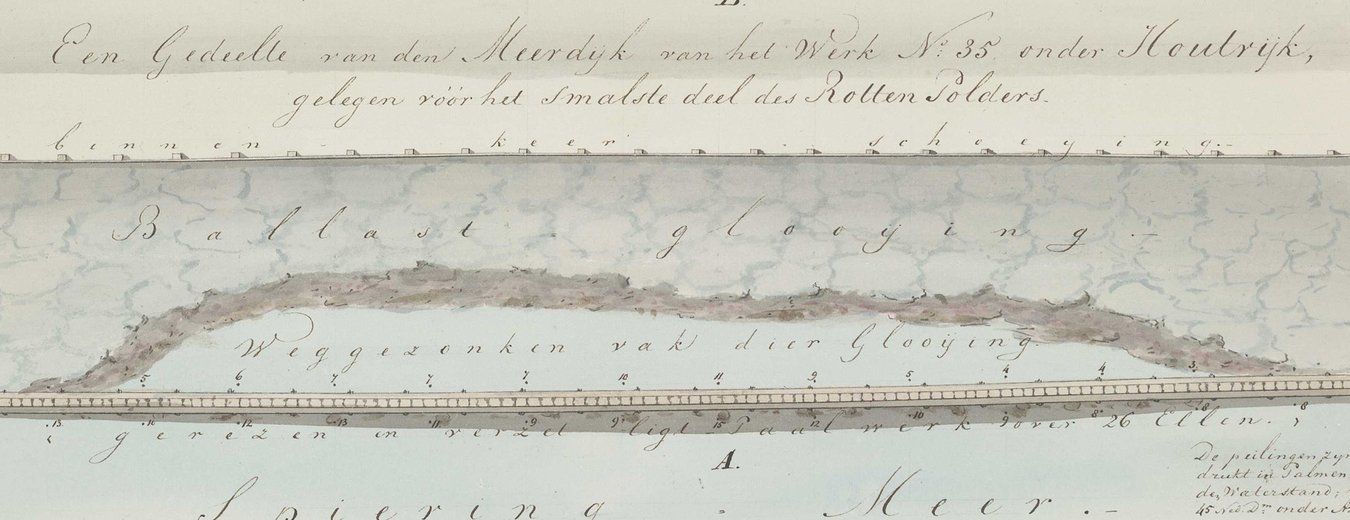 B.
Een Gedeelte van den Meerdyk van het Werk No. 35. onder Houtrijk,
gelegen vóór het smalste deel des Rotten Polders.
binnen - keer - schoeying.-
Ballast - glooying.-
Weggezonken vak dier Glooying
5 6 7 7 7 10 11 9 5 4 4 3
13 10 12 13 11 9 9 15 12 10 9 8 8 8
gerezen en verzet ligt Paalwerk over 26 Ellen.
A.
De peilingen zyn
drukt in Palmen
de Waterstand;
45 Ned. Dm onder A
Spiering - Meer.-